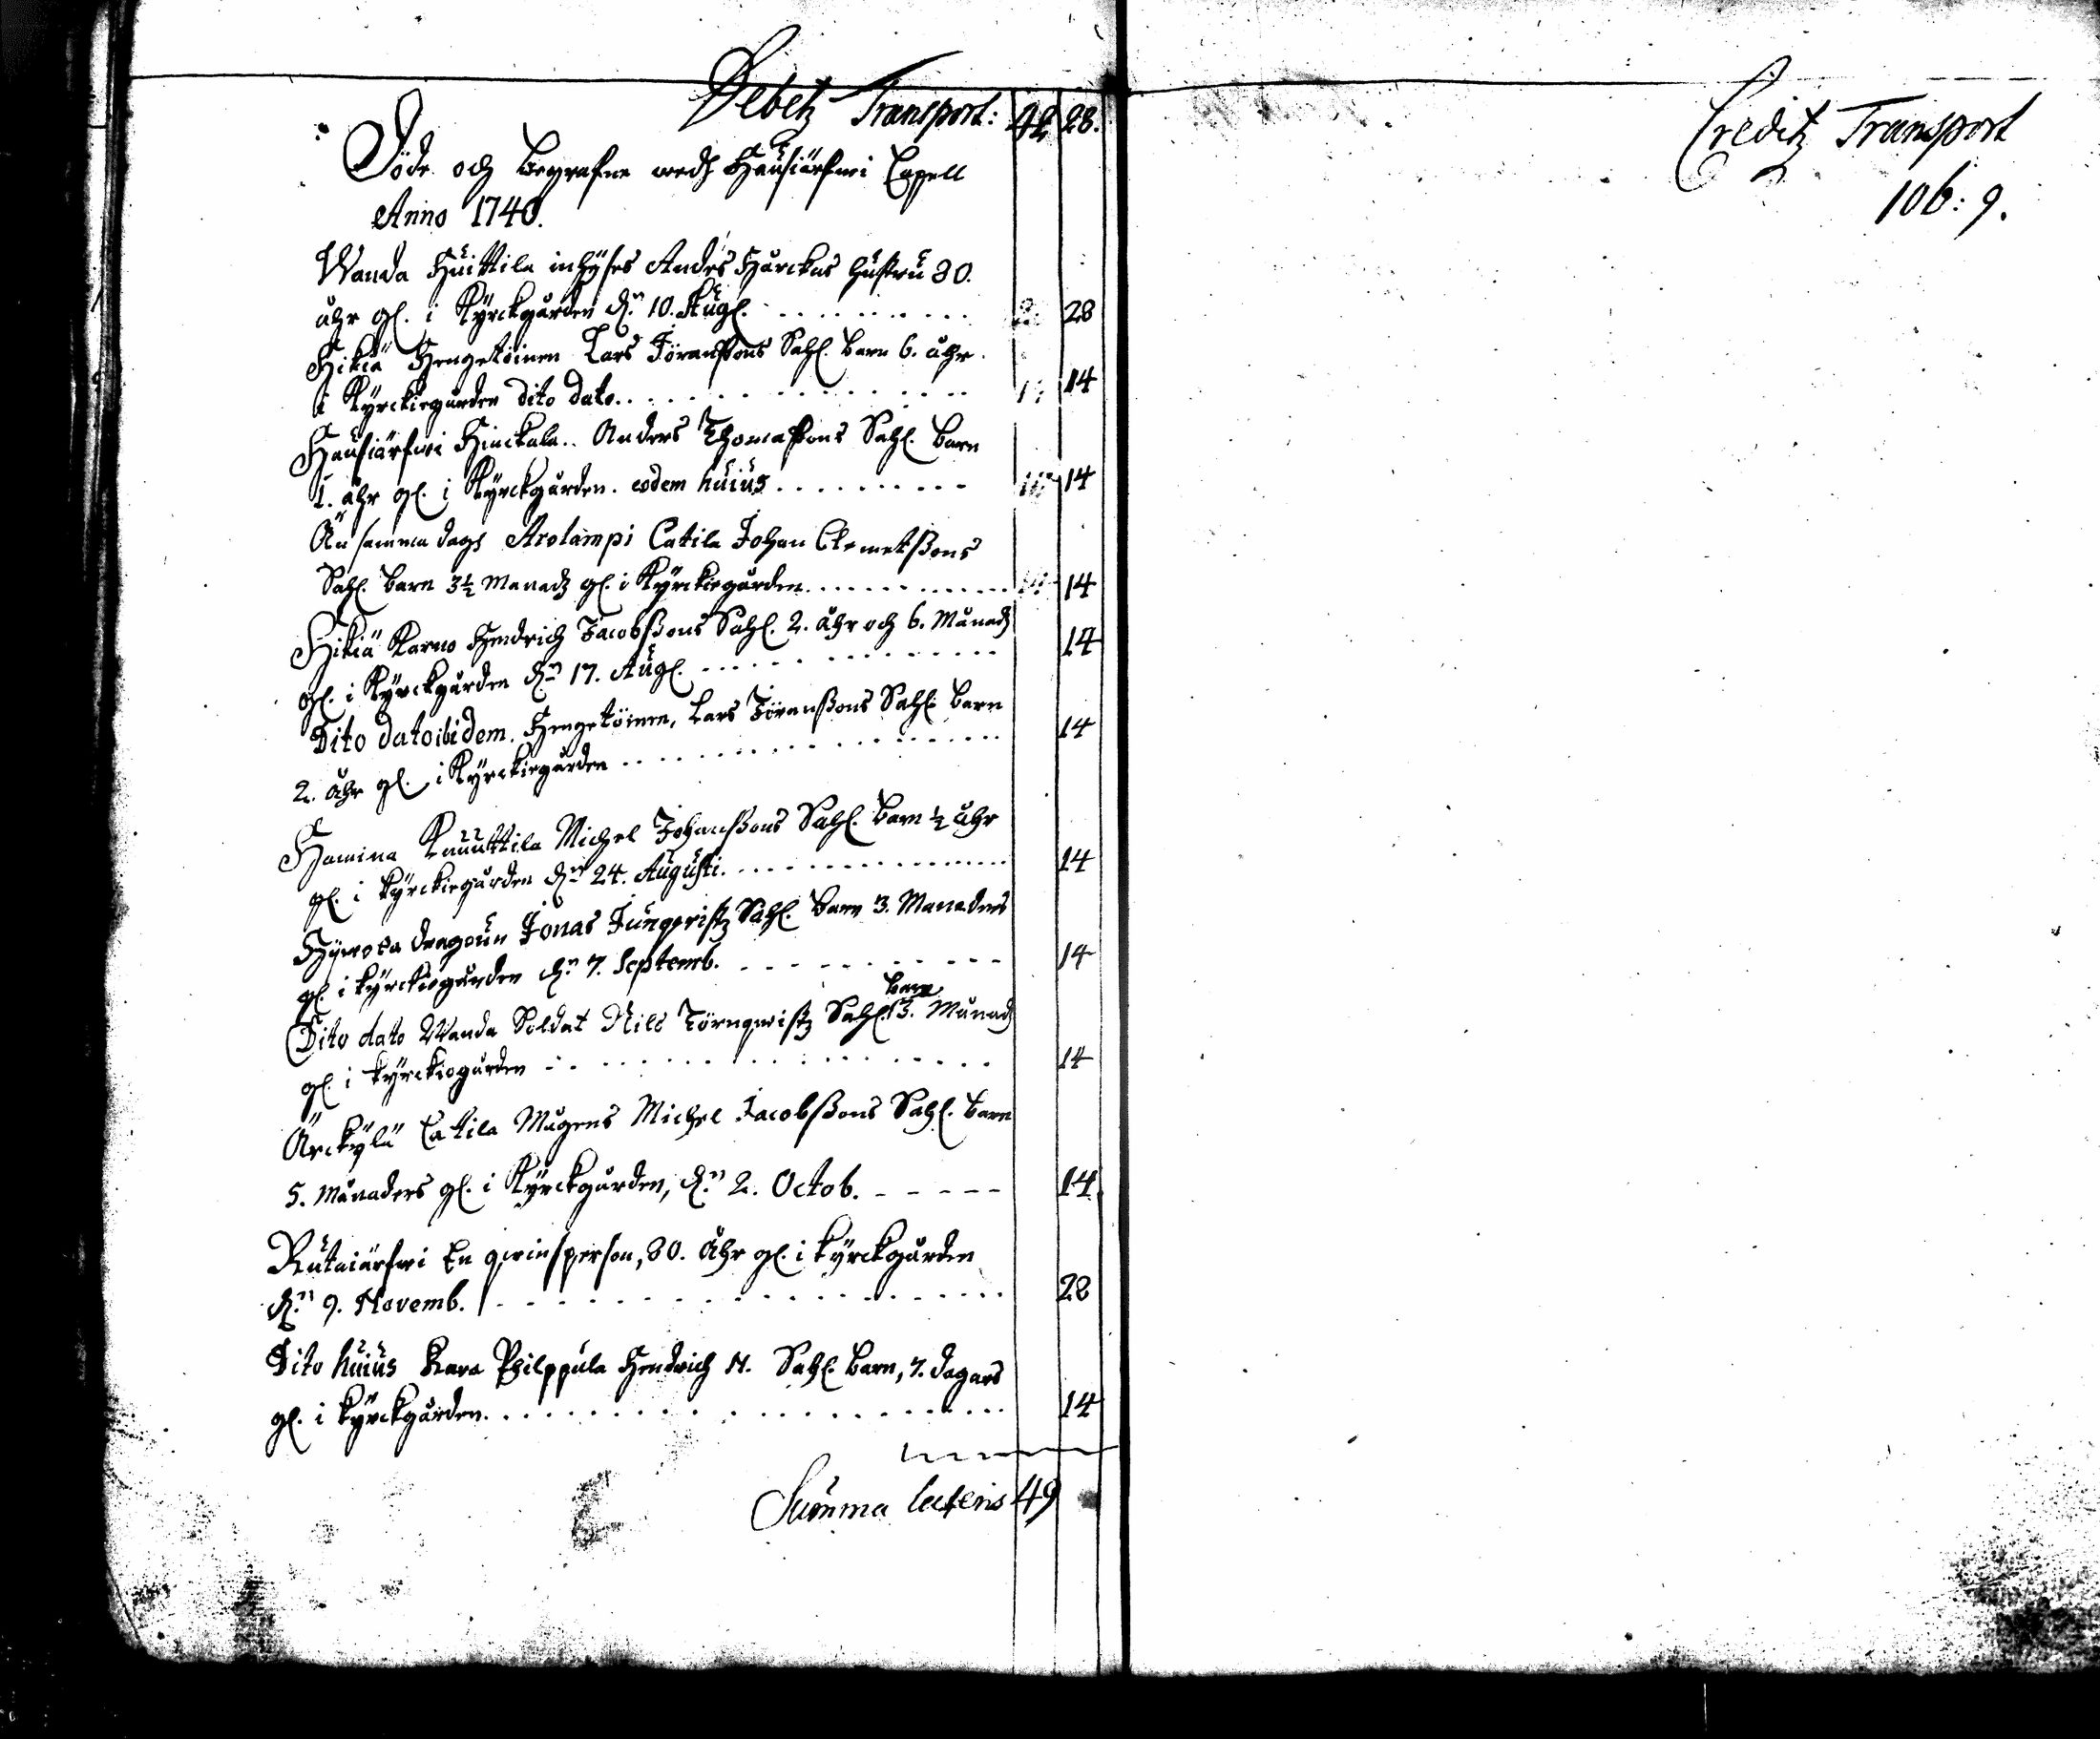 Debetz Transport: 42 28.
Döde och begrafne wedh Hausiärfwi Capell
Anno 1740.
Wanda Huittila inhyses Anders Hurckas hustru 80.
åhr gl. i Kyrckgården d.n 10. Aug. 28
Hikiä Hengetöinen Lars Jöranßons Sahl. barn 6. åhr
i Kyrckiogården dito dato. 14
Hausiärfwi Hinckala Anders Thomaßons Sahl. barn
1. åhr gl. i Kyrckgården. eodem huius 14
Än samma dagh Arolampi Catila Johan Clemetßons
Sahl. barn 3½ Månadz gl. i Kyrckiogården 14
Hikiä Karno Hendrich Jacobßons Sahl. 2. åhr och 6. Månadz
gl. i Kyrckgården d.n 17. Aug. 14
Dito dato ibidem. Hengetöinen, Lars Jöranßons Sahl. barn
2. åhr gl. i Kyrckiogården 14
Hamina Knuuttila Michel Johanßons Sahl. barn ½ åhr
gl. i kyrckiogården d.n 24. Augusti. 14
Hyrola dragoun Jonas Jungqvistz Sahl. barn 3. Månaders
gl. i kyrckiogården d.n 7. Septemb. 14
barn
Dito dato Wanda Soldat Nils Törnqwistz Sahl. 3. Månadz
gl. i kyrckiogården 14
Ärckylä Catila Mågens Michel Jacobßons Sahl. barn
5. Månaders gl. i Kyrckgården, d.n 2. Octob. 14
Rutaiärfwi En qwinsperson, 80. åhr gl. i kyrckgården
d.n 9. Novemb. 28
Dito huius Kara Philppula Hendrich N. Sahl. barn, 7. dagars
gl. i kyrckgården. 14
Summa lateris 49
Creditz Transport
106: 9.